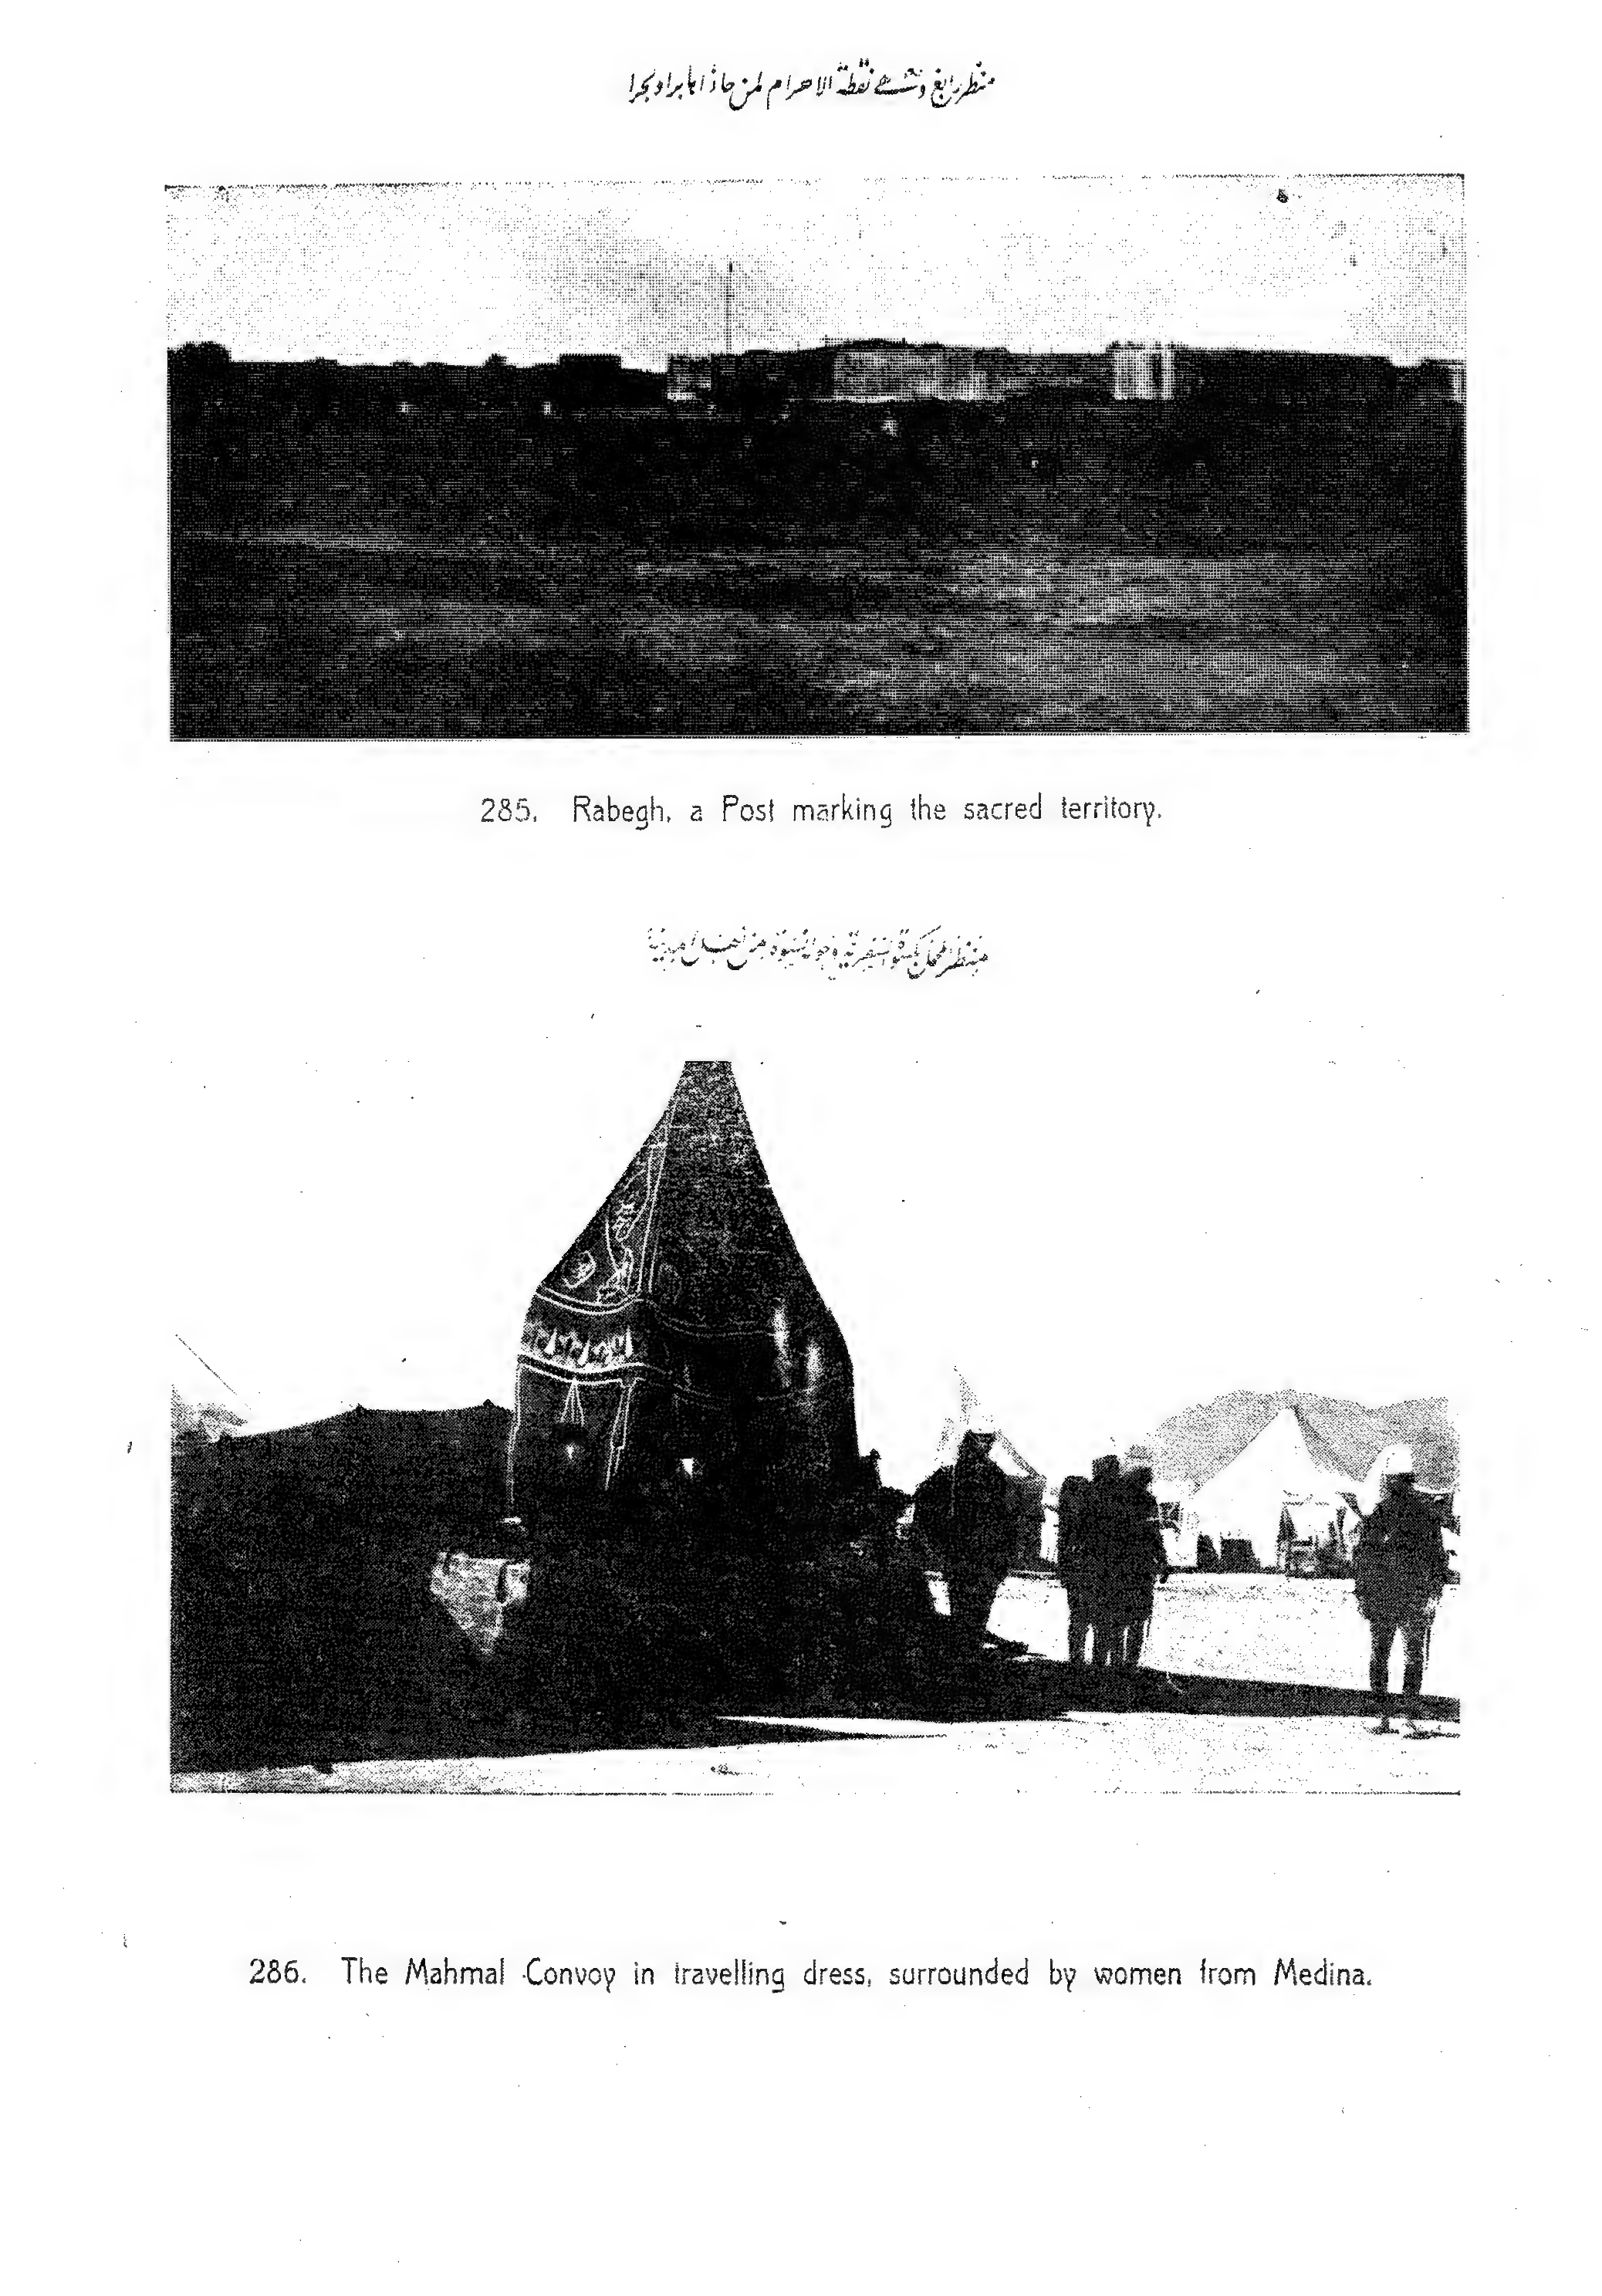 منظر رابغ وتشهد نقطة الاحرام لمن حاذاها برا وبحرا
285. Rabegh, a Post marking the sacred territory.
منظر المحمل بكسوته السفرية وحوله نسوة من أهل المدينة
286. The Mahmal Convoy in travelling dress, surrounded by women from Medina.